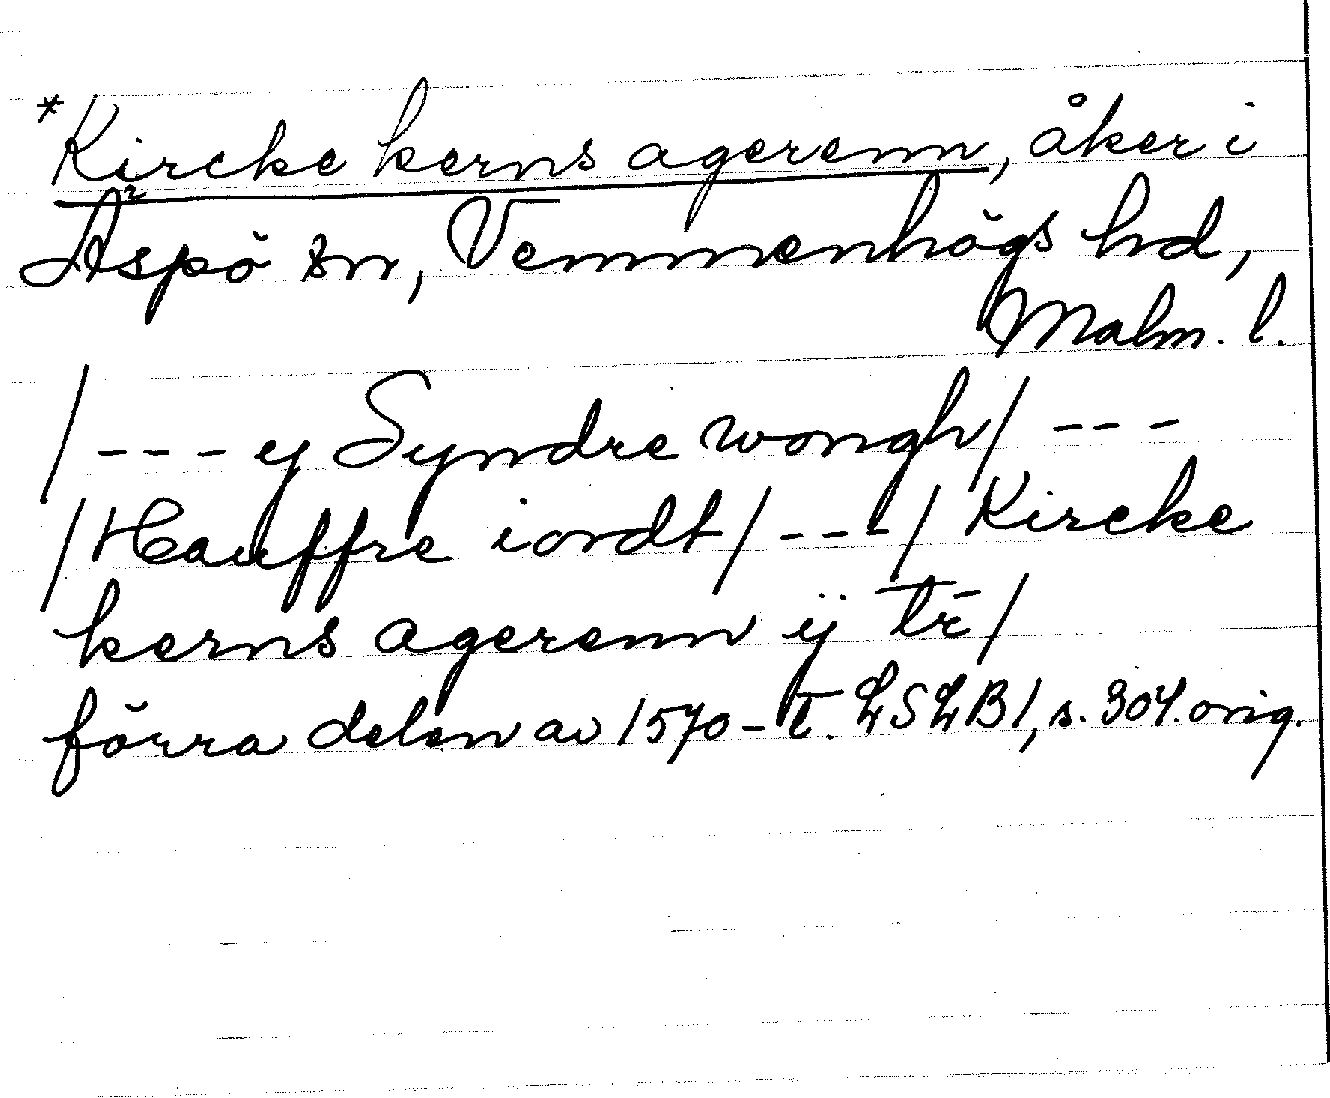 *Kircke kerns agerenn, åker i
Äspö sn, Vemmenhögs hd,
Malm. l.
/--- ej Syndre wongh/ ---
/Hauffre iordt/---/Kircke
kerns agerenn ij tr̄/
förra delen av 1570-t. LSLB1, s. 304. orig.